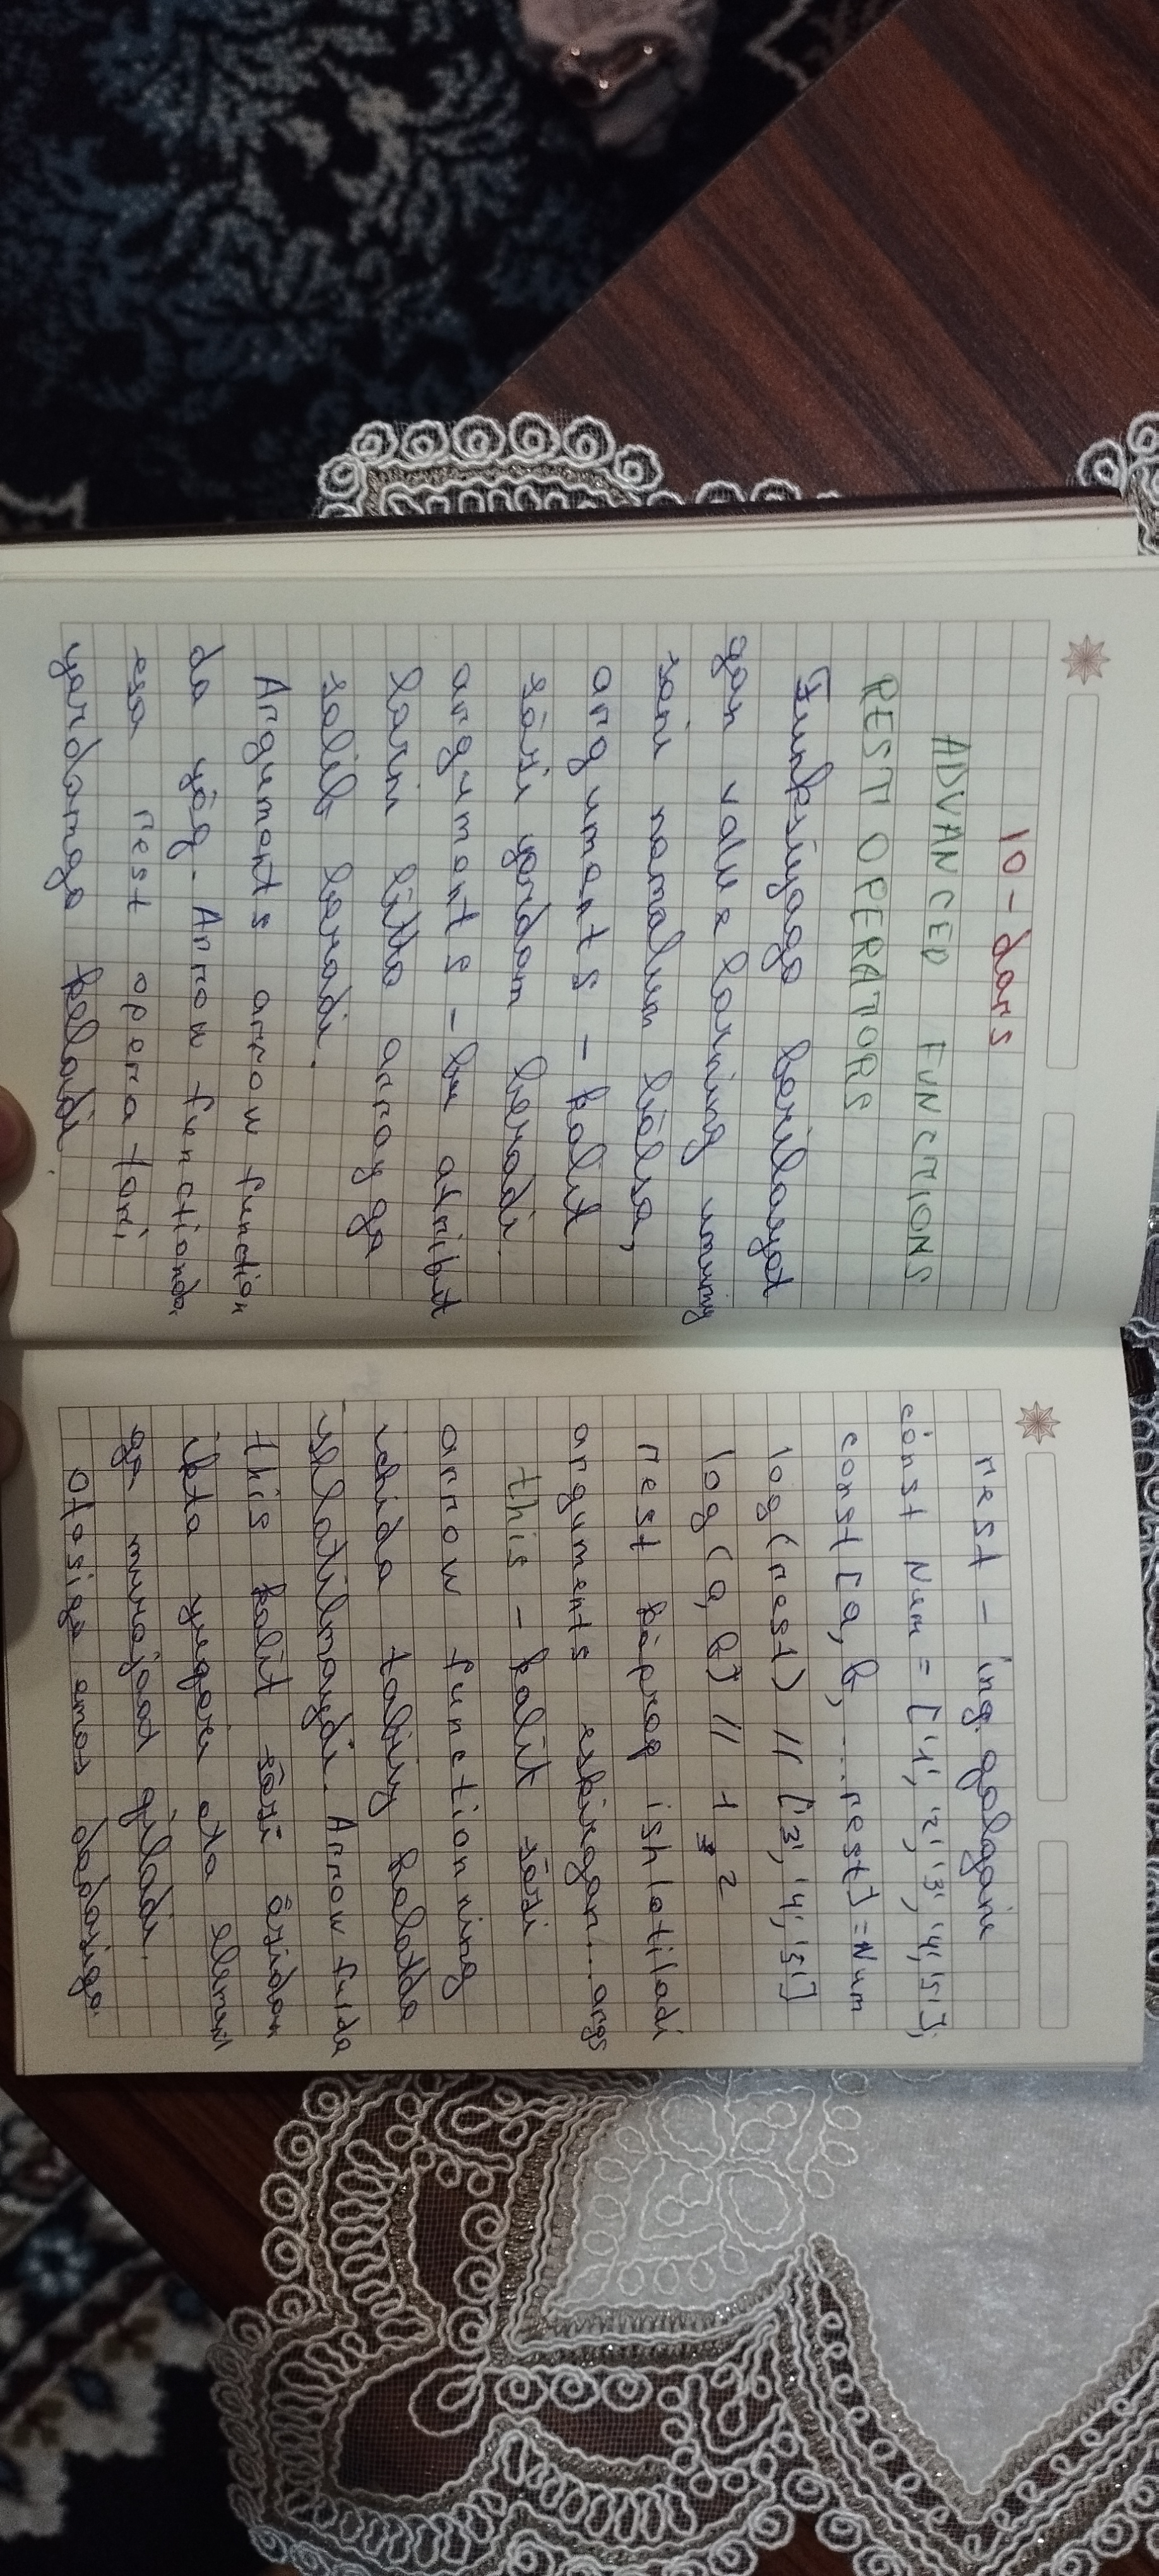 10-dars
ADVANCED FUNCTIONS
REST OPERATORS
Funksiyaga berilayot
gan value larning uning
soni nomalum bôlsa,
arguments - kalit
sôzi yordam beradi.
arguments - bu atribut
larni bitta array ga
solib beradi.
Arguments arrow function
da yôq. Arrow functionda
esa rest opera-tori
yordamga keladi.
rest - ing. qolgani
const Num = ['1', '2', '3', '4', '5'];
const [a, b, ...rest] = Num
log(rest) // ['3', '4', '5']
log(a, b) // 1 2
rest kôproq ishlatiladi
arguments eskirgan...args
this - kalit sôzi
arrow functionning
ichida tabiiy holatda
ishlatilmaydi. Arrow fulda
this kalit sôzi ôzidan
ikta yuqori ota element
ga murojaat qiladi.
Otasiga emas bobosiga.